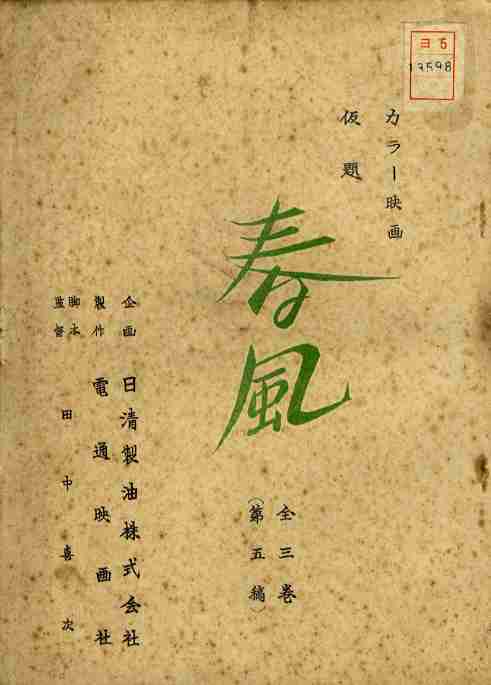 ヨ5
13598
カラー映画
仮題
春風
全三巻
(第五稿)
企画 日清製油株式会社
製作 電通映画社
脚本
監督 田中喜次